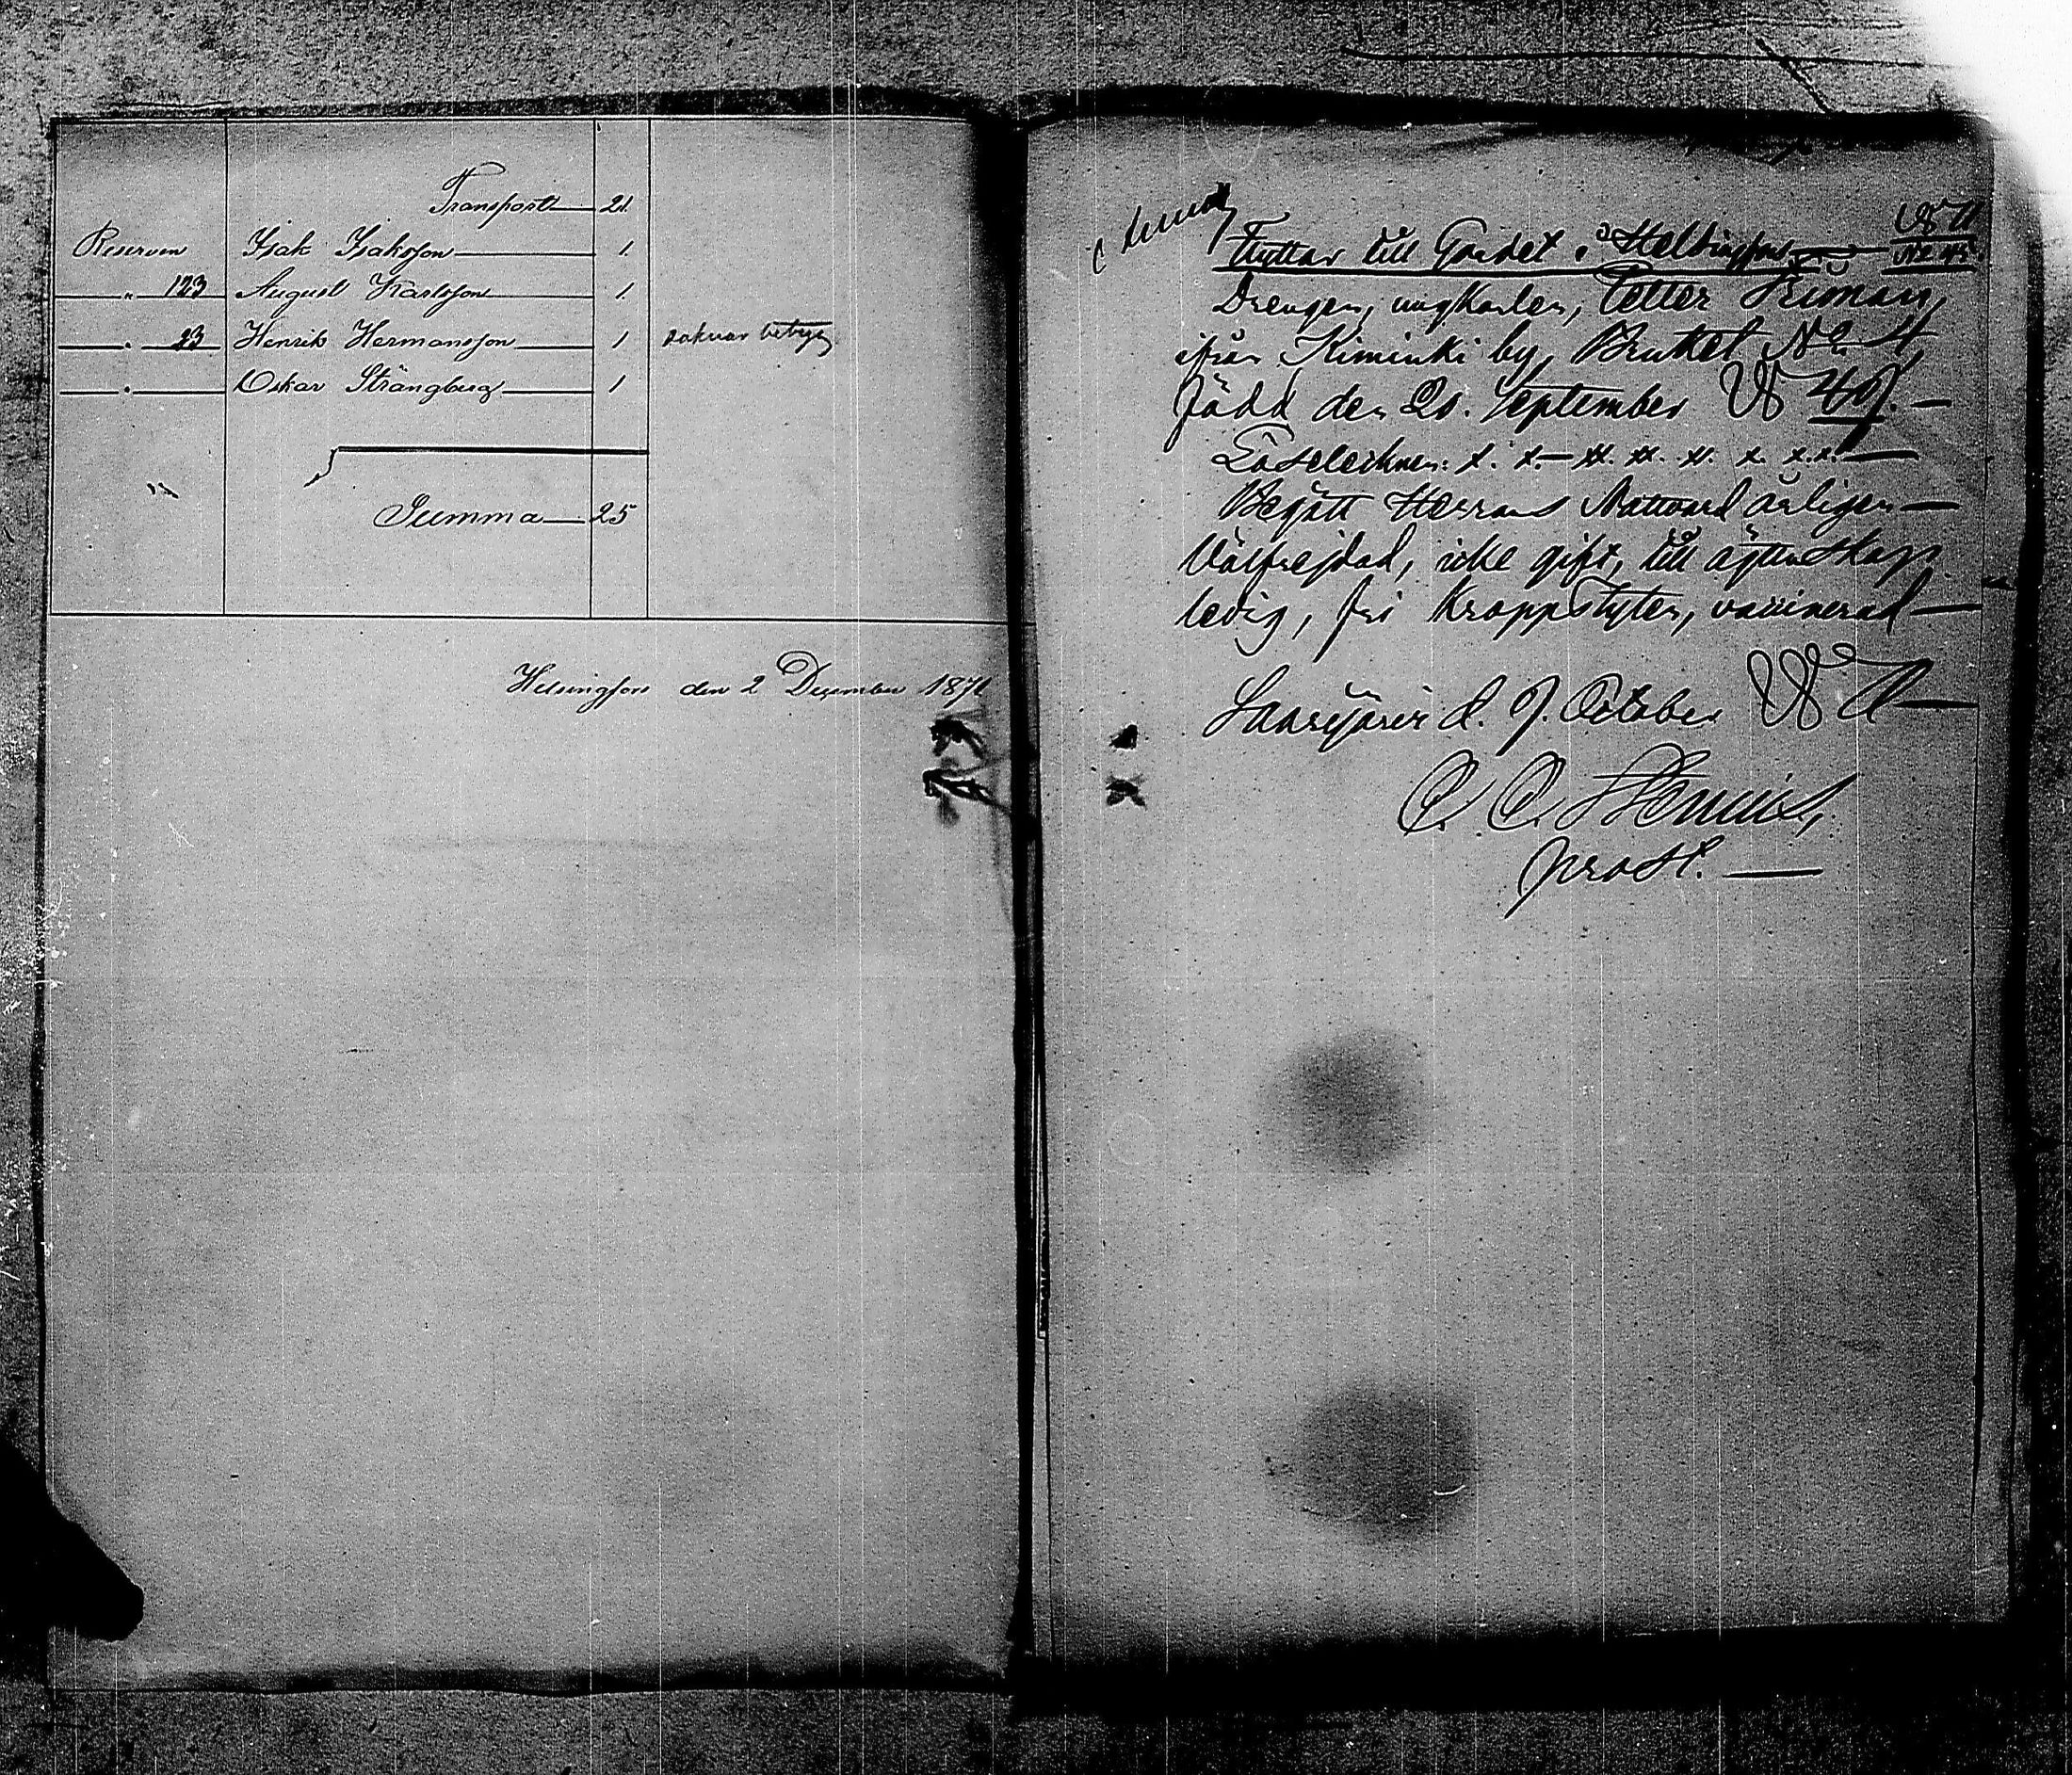 Transport 21.
Reserven Isak Isaksson 1.
" 123 August Karlsson 1.
" 23 Henrik Hermansson 1 saknar betyg
" Oskar Strängberg 1
Summa 25
Helsingfors den 2 December 1871
Flyttar till Gardet i Helsingfors
Drengen, ungkarlen, Petter
ifrån Kiminki by, Bruket No 4,
född den 20. September
Läsetecknen: x. x. x. x. x. x. x.x.
Begått Herrans Nattvard årligen
Välfrejdad, icke gift, till ägtenskap
ledig, fri kroppslyten, vaccinerad
Saarijärvi d. 9. October
prost.